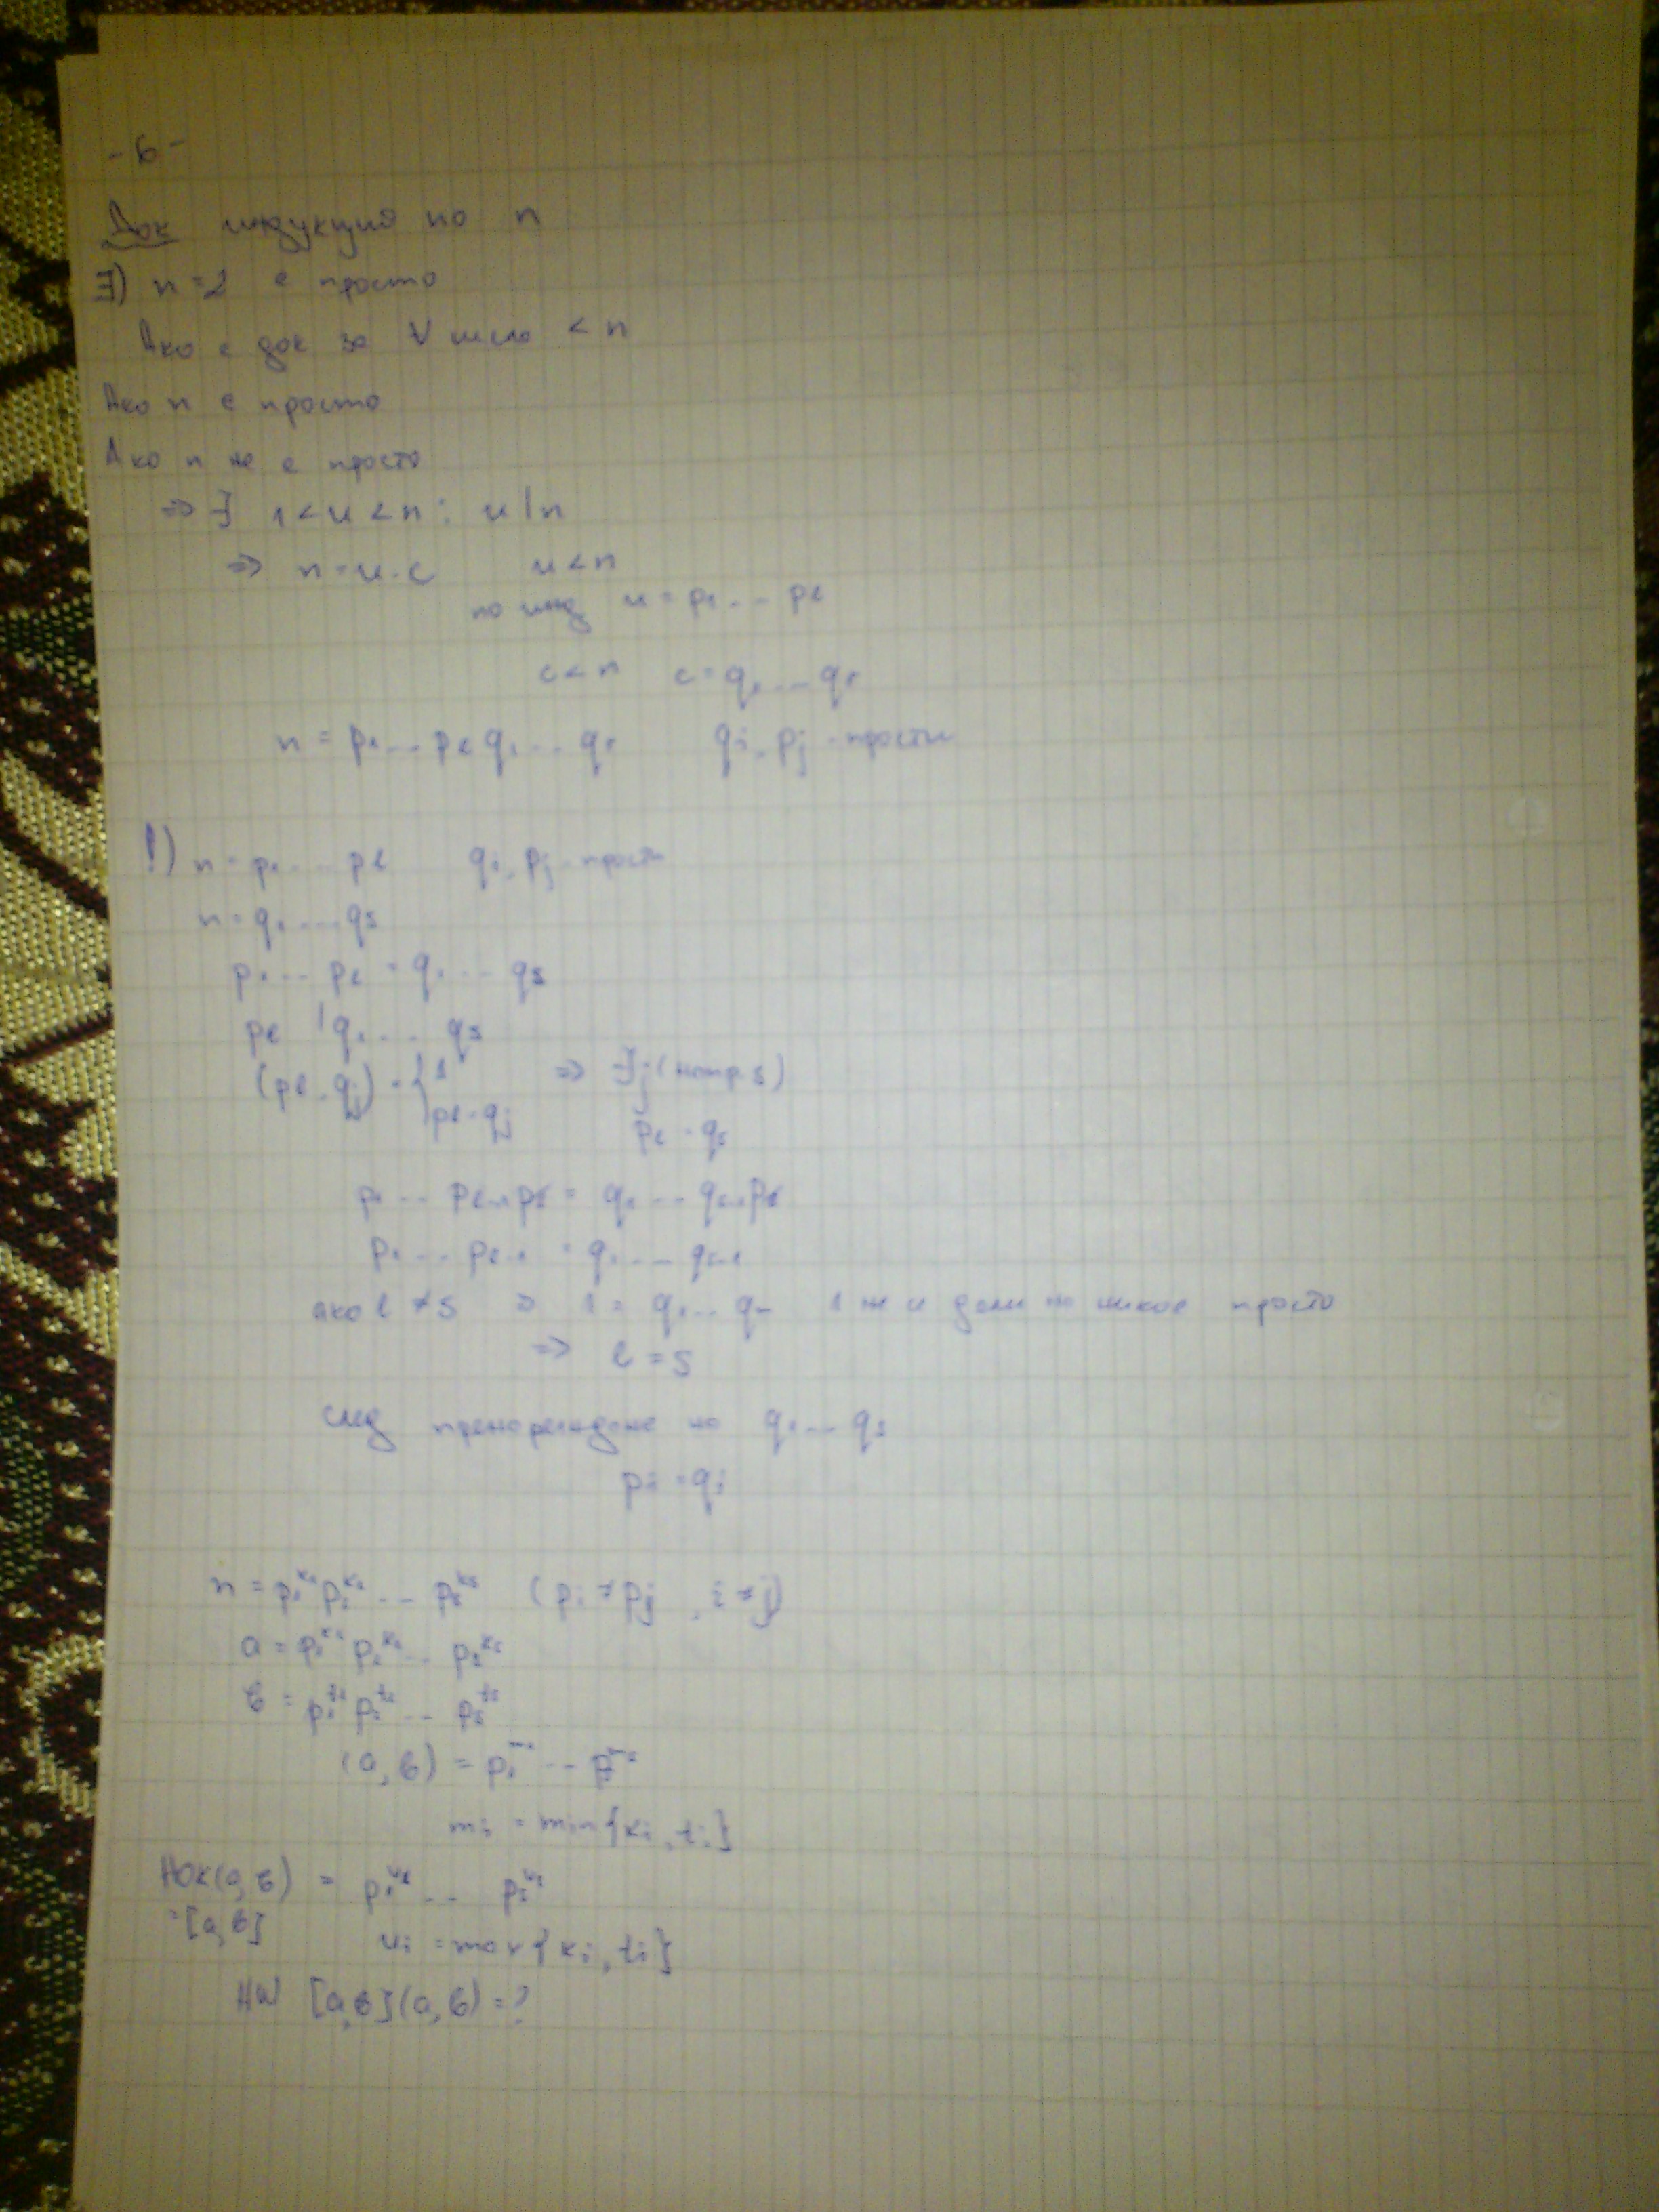 -6-
Док индукция по n
∃) n=2 е просто
Ако е док за ∀ число < n
Ако n е просто
Ако n не е просто
=> ∃ 1<u<n : u|n
=> n=u.c u<n
по инд u = p₁...pₗ
c<n c=q₁...qᵣ
n = p₁...pₗ q₁...qᵣ qᵢ, pⱼ - прости
!) n = p₁...pₗ qᵢ, pⱼ - прости
n = q₁...qₛ
p₁...pₗ = q₁...qₛ
pₗ | q₁...qₛ
(pₗ, qⱼ) = { 1 => ∃j (напр s)
pₗ = qⱼ pₗ = qₛ
p₁...pₗ₋₁pₗ = q₁...qₛ₋₁pₗ
p₁...pₗ₋₁ = q₁...qₛ₋₁
ако l ≠ s => 1 = q₁...qₘ 1 не се дели на никое просто
=> l = s
след пренареждане на q₁...qₛ
pᵢ = qᵢ
n = p₁ᵏ¹ p₂ᵏ² ... pₛᵏˢ (pᵢ ≠ pⱼ, i ≠ j)
a = p₁ᵏ¹ p₂ᵏ² ... pₛᵏˢ
b = p₁ᵗ¹ p₂ᵗ² ... pₛᵗˢ
(a, b) = p₁ᵐ¹ ... pₛᵐˢ
mᵢ = min{kᵢ, tᵢ}
НОК(a, b) = p₁ᵘ¹ ... pₛᵘˢ
=[a, b]
uᵢ = max{kᵢ, tᵢ}
HW [a,b](a,b) = ?